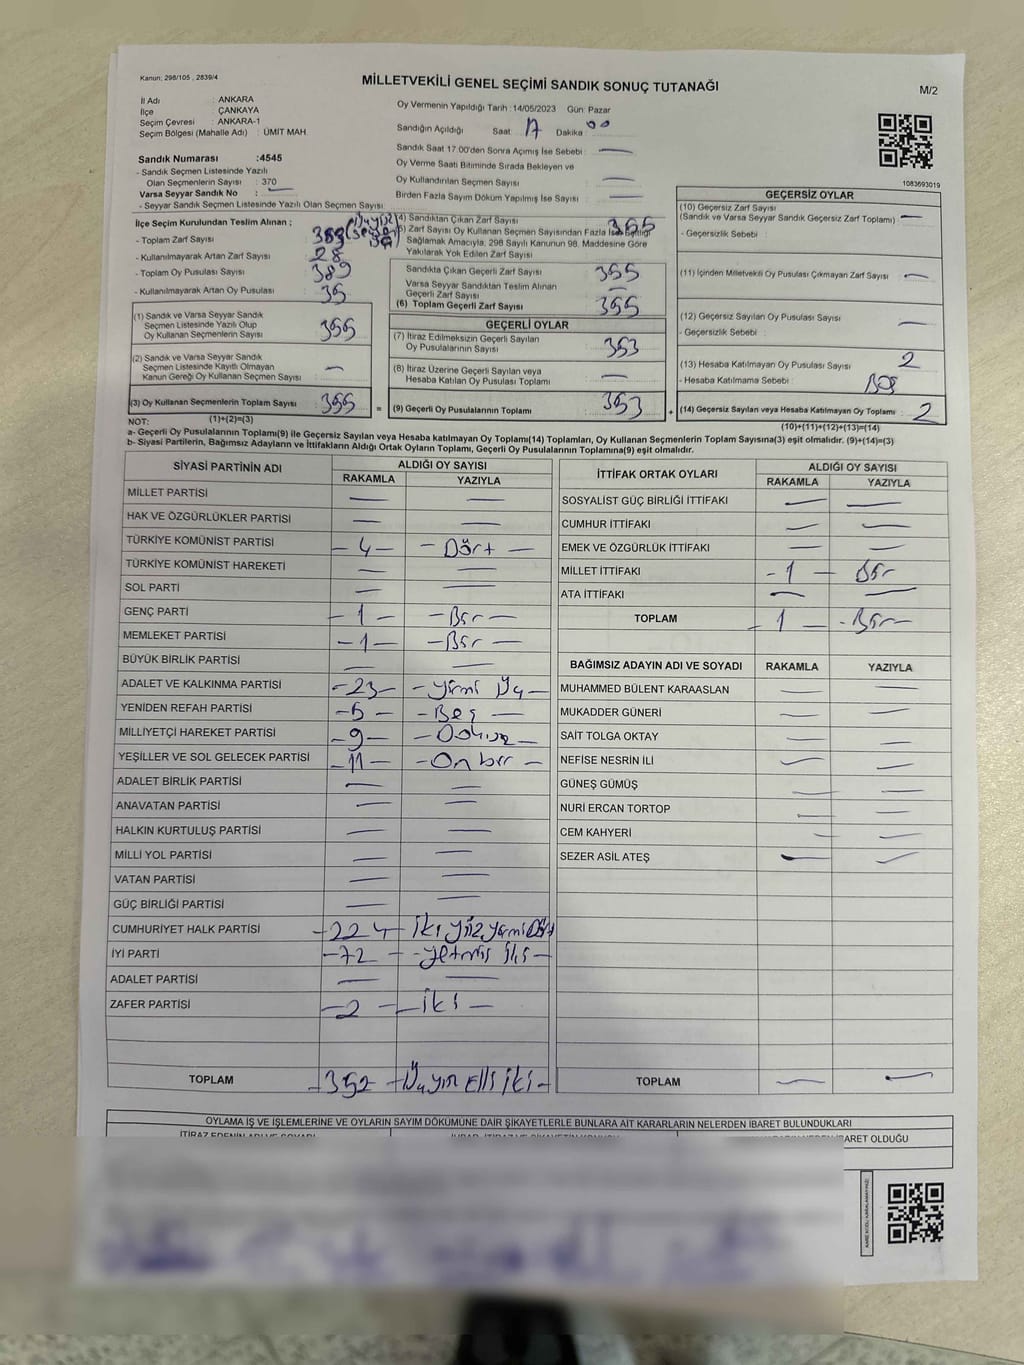 Kanun: 298/105 , 2839/4
MİLLETVEKİLİ GENEL SEÇİMİ SANDIK SONUÇ TUTANAĞI
M/2
İl Adı : ANKARA
İlçe : ÇANKAYA
Seçim Çevresi : ANKARA-1
Seçim Bölgesi (Mahalle Adı) : ÜMİT MAH.
Sandık Numarası :4545
- Sandık Seçmen Listesinde Yazılı
Olan Seçmenlerin Sayısı : 370
Varsa Seyyar Sandık No : —
- Seyyar Sandık Seçmen Listesinde Yazılı Olan Seçmen Sayısı
Oy Vermenin Yapıldığı Tarih :14/05/2023 Gün: Pazar
Sandığın Açıldığı Saat 17 Dakika 00
Sandık Saat 17:00'den Sonra Açımış İse Sebebi : —
Oy Verme Saati Bitiminde Sırada Bekleyen ve
Oy Kullandırılan Seçmen Sayısı : —
Birden Fazla Sayım Döküm Yapılmış İse Sayısı : —
1083693019
İlçe Seçim Kurulundan Teslim Alınan ;
- Toplam Zarf Sayısı : 383
- Kullanılmayarak Artan Zarf Sayısı : 28
- Toplam Oy Pusulası Sayısı : 389
- Kullanılmayarak Artan Oy Pusulası : 35
(1) Sandık ve Varsa Seyyar Sandık
Seçmen Listesinde Yazılı Olup
Oy Kullanan Seçmenlerin Sayısı : 355
(2) Sandık ve Varsa Seyyar Sandık
Seçmen Listesinde Kayıtlı Olmayan
Kanun Gereği Oy Kullanan Seçmen Sayısı : —
(3) Oy Kullanan Seçmenlerin Toplam Sayısı : 355 =
(1)+(2)=(3)
(4) Sandıktan Çıkan Zarf Sayısı 355
(5) Zarf Sayısı Oy Kullanan Seçmen Sayısından Fazla İse Eşitliği
Sağlamak Amacıyla, 298 Sayılı Kanunun 98. Maddesine Göre
Yakılarak Yok Edilen Zarf Sayısı
Sandıkta Çıkan Geçerli Zarf Sayısı : 355
Varsa Seyyar Sandıktan Teslim Alınan
Geçerli Zarf Sayısı : —
(6) Toplam Geçerli Zarf Sayısı : 355
GEÇERLİ OYLAR
(7) İtiraz Edilmeksizin Geçerli Sayılan
Oy Pusulalarının Sayısı : 353
(8) İtiraz Üzerine Geçerli Sayılan veya
Hesaba Katılan Oy Pusulası Toplamı : —
(9) Geçerli Oy Pusulalarının Toplamı : 353 +
GEÇERSİZ OYLAR
(10) Geçersiz Zarf Sayısı
(Sandık ve Varsa Seyyar Sandık Geçersiz Zarf Toplamı) : —
- Geçersizlik Sebebi :
(11) İçinden Milletvekili Oy Pusulası Çıkmayan Zarf Sayısı : —
(12) Geçersiz Sayılan Oy Pusulası Sayısı : —
- Geçersizlik Sebebi :
(13) Hesaba Katılmayan Oy Pusulası Sayısı : 2
- Hesaba Katılmama Sebebi : BOŞ
(14) Geçersiz Sayılan veya Hesaba Katılmayan Oy Toplamı : 2
(10)+(11)+(12)+(13)=(14)
NOT:
a- Geçerli Oy Pusulalarının Toplamı(9) ile Geçersiz Sayılan veya Hesaba katılmayan Oy Toplamı(14) Toplamları, Oy Kullanan Seçmenlerin Toplam Sayısına(3) eşit olmalıdır. (9)+(14)=(3)
b- Siyasi Partilerin, Bağımsız Adayların ve İttifakların Aldığı Ortak Oyların Toplamı, Geçerli Oy Pusulalarının Toplamına(9) eşit olmalıdır.
SİYASİ PARTİNİN ADI ALDIĞI OY SAYISI
RAKAMLA YAZIYLA
MİLLET PARTİSİ — —
HAK VE ÖZGÜRLÜKLER PARTİSİ — —
TÜRKİYE KOMÜNİST PARTİSİ — 4 — — Dört —
TÜRKİYE KOMÜNİST HAREKETİ — —
SOL PARTİ — —
GENÇ PARTİ — 1 — — Bir —
MEMLEKET PARTİSİ — 1 — — Bir —
BÜYÜK BİRLİK PARTİSİ — —
ADALET VE KALKINMA PARTİSİ — 23 — — Yirmi Üç —
YENİDEN REFAH PARTİSİ — 5 — — Beş —
MİLLİYETÇİ HAREKET PARTİSİ — 9 — — Dokuz —
YEŞİLLER VE SOL GELECEK PARTİSİ — 11 — — On bir —
ADALET BİRLİK PARTİSİ — —
ANAVATAN PARTİSİ — —
HALKIN KURTULUŞ PARTİSİ — —
MİLLİ YOL PARTİSİ — —
VATAN PARTİSİ — —
GÜÇ BİRLİĞİ PARTİSİ — —
CUMHURİYET HALK PARTİSİ — 224 — İki yüz yirmi Dört
İYİ PARTİ — 72 — — Yetmiş iki —
ADALET PARTİSİ — —
ZAFER PARTİSİ — 2 — — İki —
TOPLAM — 352 — Üçyüz Elli iki —
İTTİFAK ORTAK OYLARI ALDIĞI OY SAYISI
RAKAMLA YAZIYLA
SOSYALİST GÜÇ BİRLİĞİ İTTİFAKI — —
CUMHUR İTTİFAKI — —
EMEK VE ÖZGÜRLÜK İTTİFAKI — —
MİLLET İTTİFAKI — 1 — Bir
ATA İTTİFAKI — —
TOPLAM — 1 — — Bir —
BAĞIMSIZ ADAYIN ADI VE SOYADI RAKAMLA YAZIYLA
MUHAMMED BÜLENT KARAASLAN — —
MUKADDER GÜNERİ — —
SAİT TOLGA OKTAY — —
NEFİSE NESRİN İLİ — —
GÜNEŞ GÜMÜŞ — —
NURİ ERCAN TORTOP — —
CEM KAHYERİ — —
SEZER ASİL ATEŞ — —
TOPLAM — —
OYLAMA İŞ VE İŞLEMLERİNE VE OYLARIN SAYIM DÖKÜMÜNE DAİR ŞİKAYETLERLE BUNLARA AİT KARARLARIN NELERDEN İBARET BULUNDUKLARI
İTİRAZ EDENİN ADI VE SOYADI
İBARET OLDUĞU